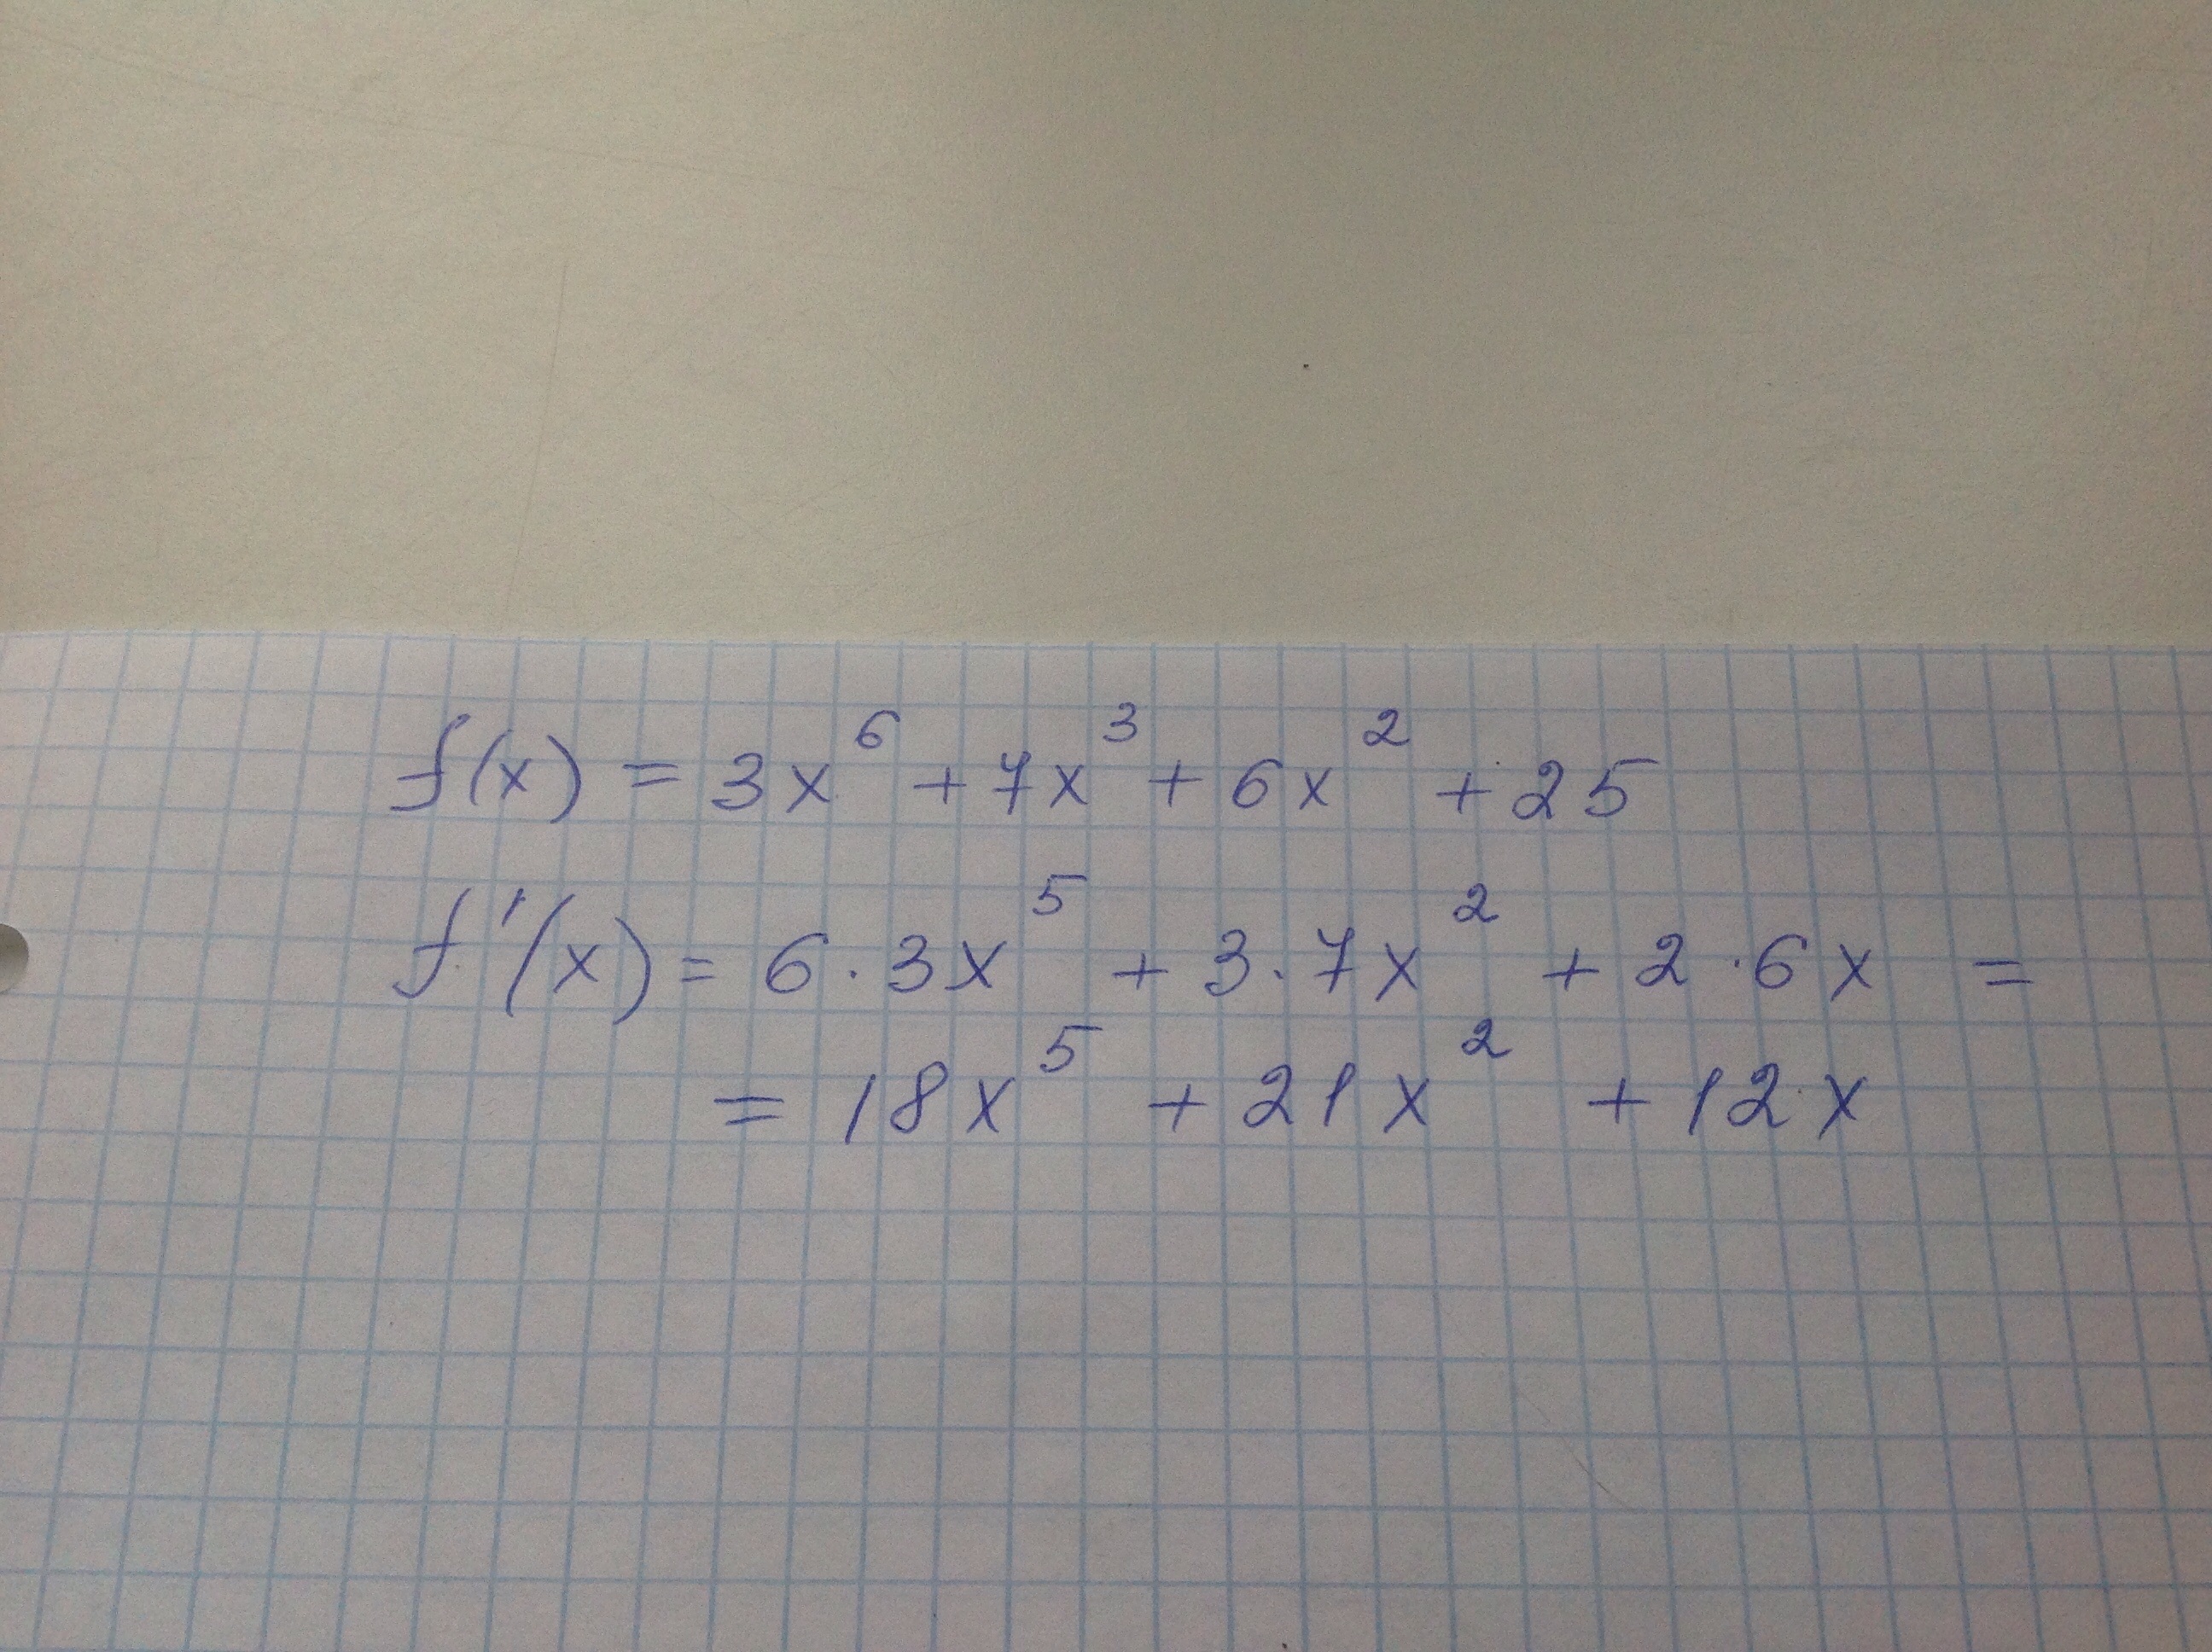 f(x) = 3x⁶ + 7x³ + 6x² + 25
f'(x) = 6·3x⁵ + 3·7x² + 2·6x =
= 18x⁵ + 21x² + 12x